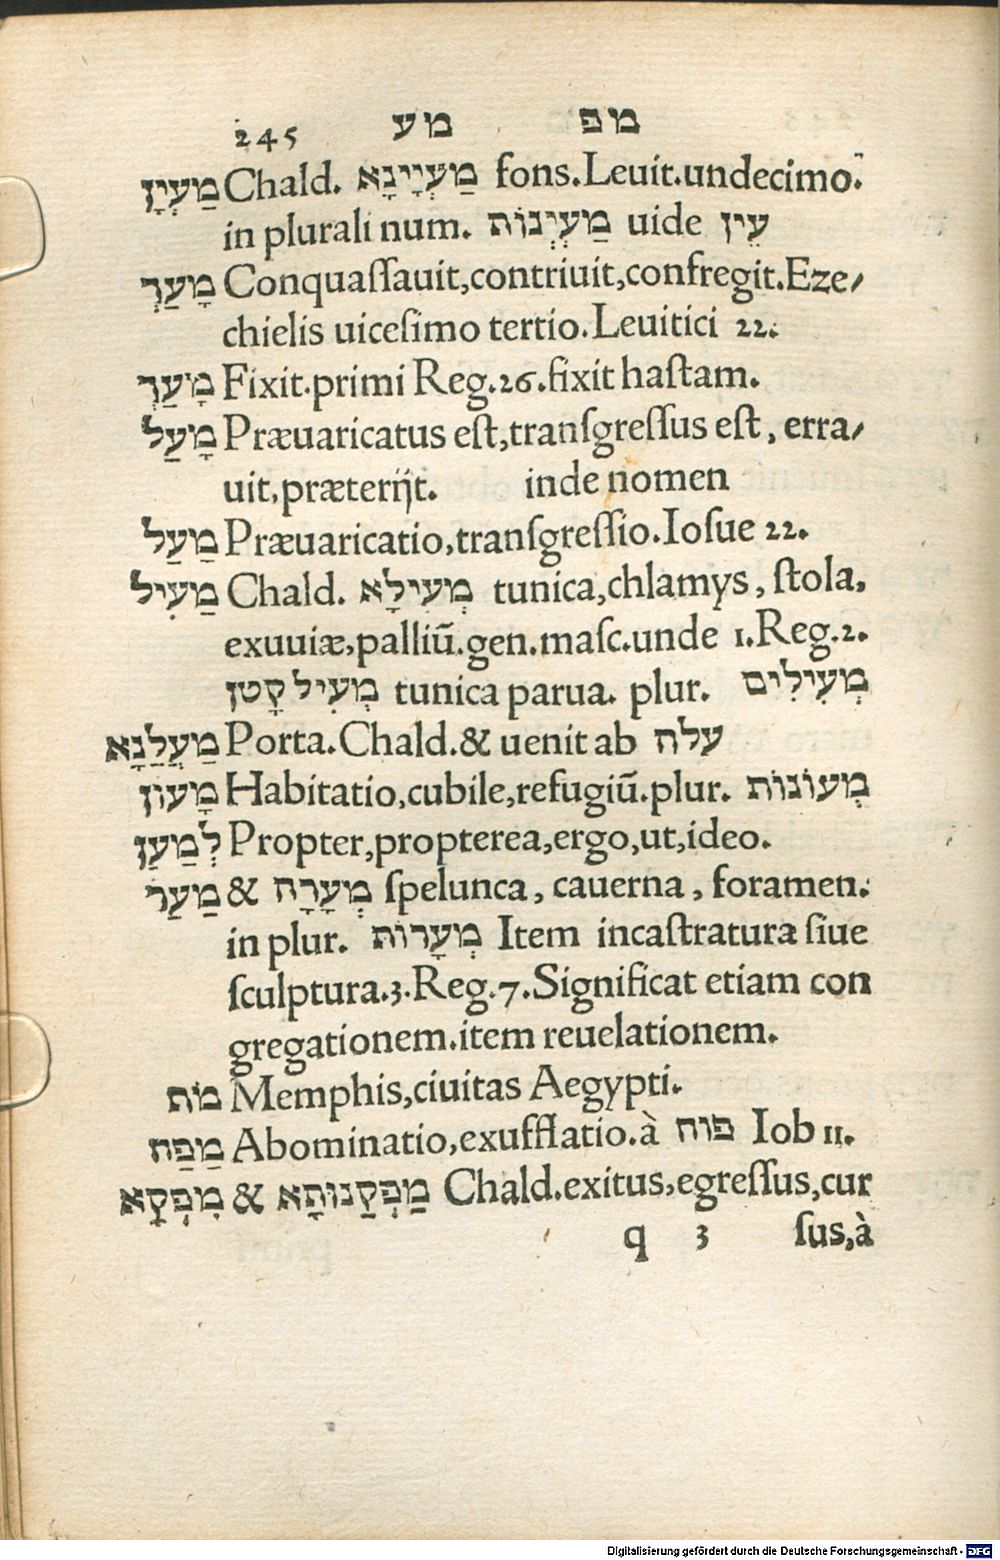 245 מע מפ
מַעְיָן Chald. מַעְיָינָא fons. Leuit. undecimo.
in plurali num. מַעְיְנוֹת uide עֵין
מָעַךְ Conquaſſauit, contriuit, confregit. Eze/
chielis uiceſimo tertio. Leuitici 22.
מָעַךְ Fixit. primi Reg. 26. fixit haſtam.
מָעַל Præuaricatus eſt, tranſgreſſus eſt, erra/
uit, præterijt. inde nomen
מַעַל Præuaricatio, tranſgreſſio. Ioſue 22.
מַעִיל Chald. מְעִילָא tunica, chlamys, ſtola,
exuuiæ, palliū. gen. maſc. unde 1. Reg. 2.
מְעִיל קָטֹן tunica parua. plur. מְעִילִים
מַעֲלַנָא Porta. Chald. & uenit ab עלה
מָעוֹן Habitatio, cubile, refugiū. plur. מְעוֹנוֹת
לְמַעַן Propter, propterea, ergo, ut, ideo.
מַעַר & מְעָרָה ſpelunca, cauerna, foramen.
in plur. מְעָרוֹת Item incaſtratura ſiue
ſculptura. 3. Reg. 7. Significat etiam con
gregationem. item reuelationem.
מֹת Memphis, ciuitas Aegypti.
מַפַּח Abominatio, exufflatio. à פוח Iob 11.
מִפְקָא & מַפְקַנוּתָא Chald. exitus, egreſſus, cur
q 3 ſus, à
Digitalisierung gefördert durch die Deutsche Forschungsgemeinschaft - DFG